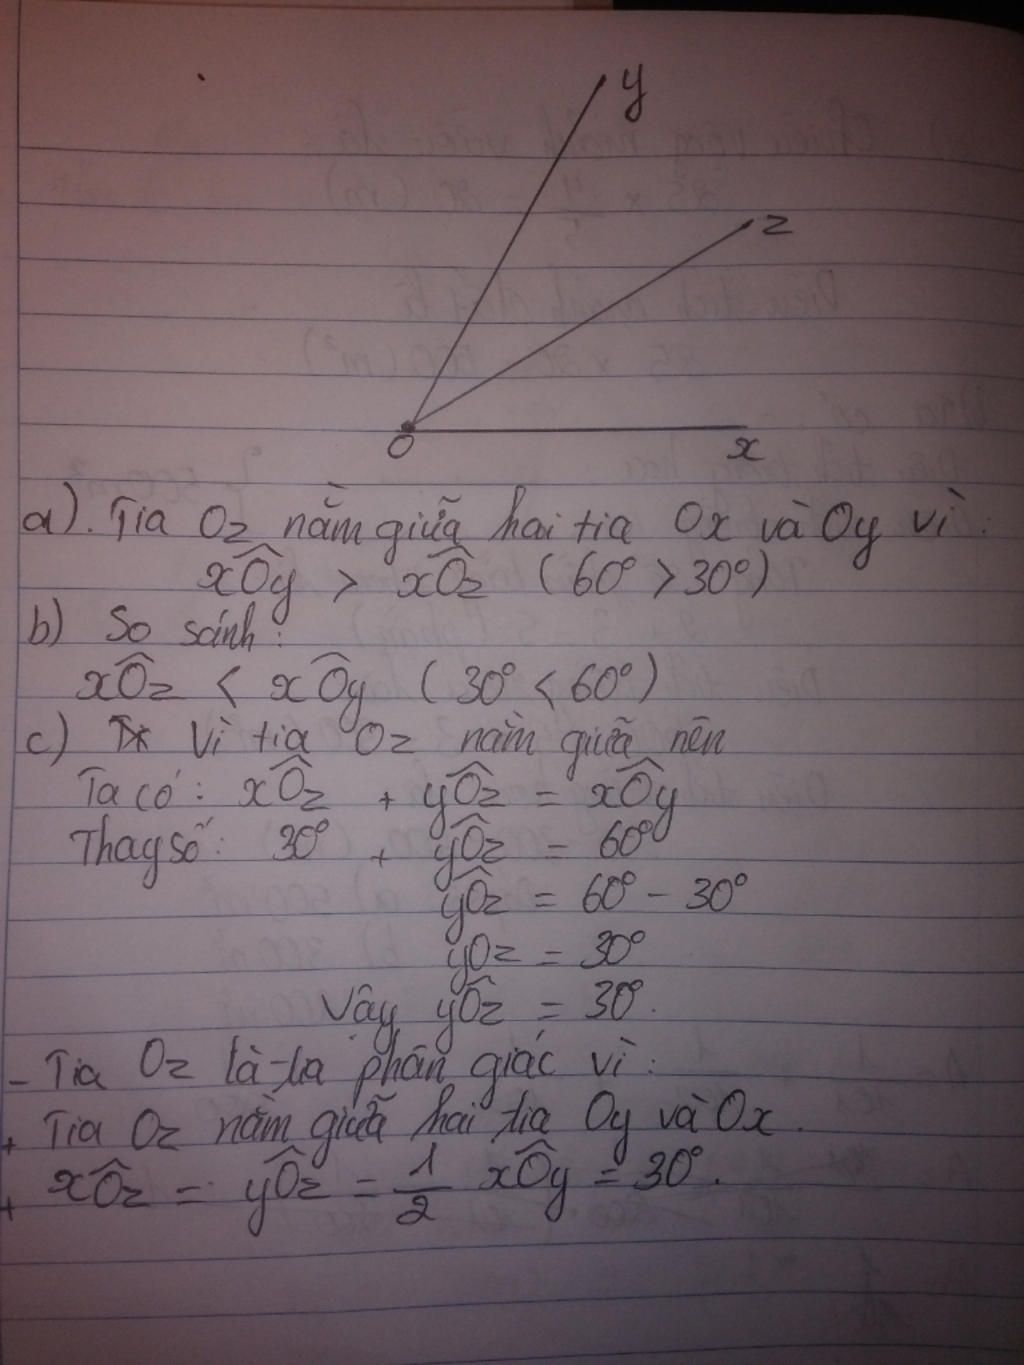 y
z
O
x
a). Tia Oz nằm giữa hai tia Ox và Oy vì:
xÔy > xÔz (60° > 30°)
b) So sánh:
xÔz < xÔy (30° < 60°)
c) Vì tia Oz nằm giữa nên
Ta có: xÔz + yÔz = xÔy
Thay số: 30° + yÔz = 60°
yÔz = 60° - 30°
yOz = 30°
Vậy yÔz = 30°.
- Tia Oz là tia phân giác vì:
+ Tia Oz nằm giữa hai tia Oy và Ox.
+ xÔz = yÔz = 1/2 xÔy = 30°.